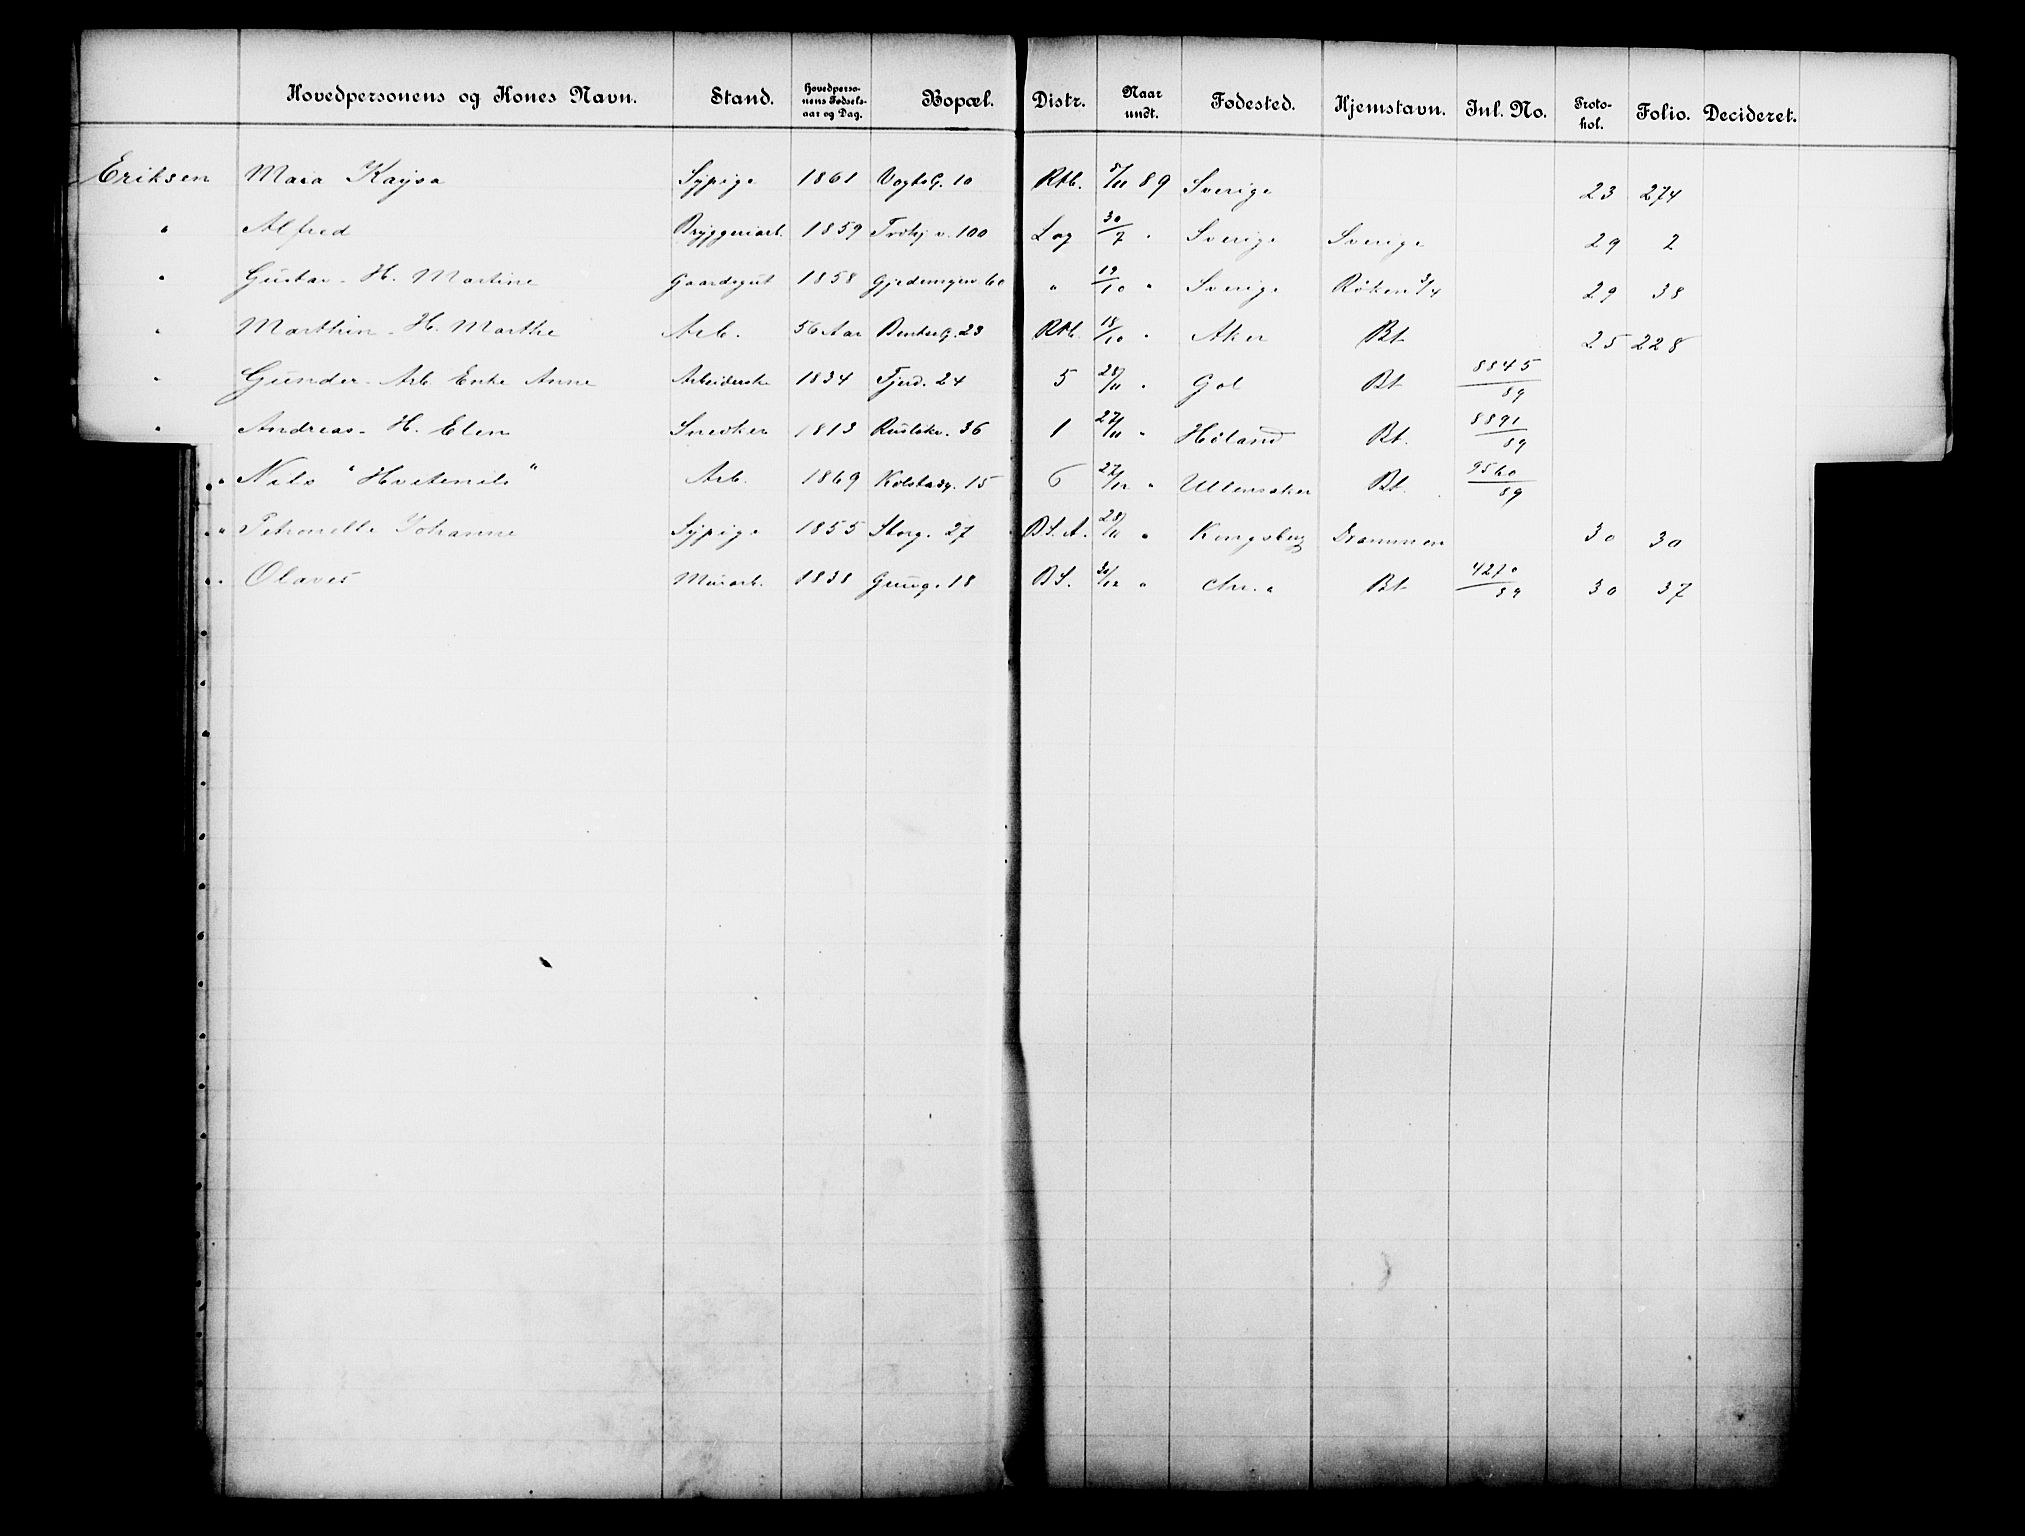 Hovedpersonens og Kones Navn. Stand. Hovedpersonens Fødselsaar og Dag. Bopæl. Distr. Naar undt. Fødested. Hjemstavn. Inl. No. Protokol. Folio. Decideret.
Eriksen Maia Kaysa Sypige 1861 Vogts G. 10 Rtb. 5/11 89 Sverige 23 274
" Alfred Bryggeriarb. 1859 Trohj v. 100 Lag 30/7 " Sverige Sverige 29 2
" Gustav - H. Martine Gaardsgut 1858 60 " 19/10 " Sverige Røken 3/4 29 38
" Marthin - H. Marthe Arb. 56 Aar Bentseg. 23 Rtb. 18/10 " Aker Bt 25 228
" Gunder - Arb. Enke Anne Arbeiderske 1834 Fjerd. 24 5 28/11 " Gol Bt 8845/89
" Andreas - H. Elen Snedker 1813 Rusløkv. 36 1 27/11 " Høland Bt. 8891/89
" Nils "Hvitenils" Arb. 1869 Kolstadg. 15 6 27/12 " Ullensaker Bt. 9560/89
" Petronelle Johanne Sypige 1855 Storg. 27 Bs. A. 28/11 " Kongsberg Drammen 30 30
" Olaves Murarb. 1838 18 Bs. 30/12 " Chr.a Bt 4270/89 30 37